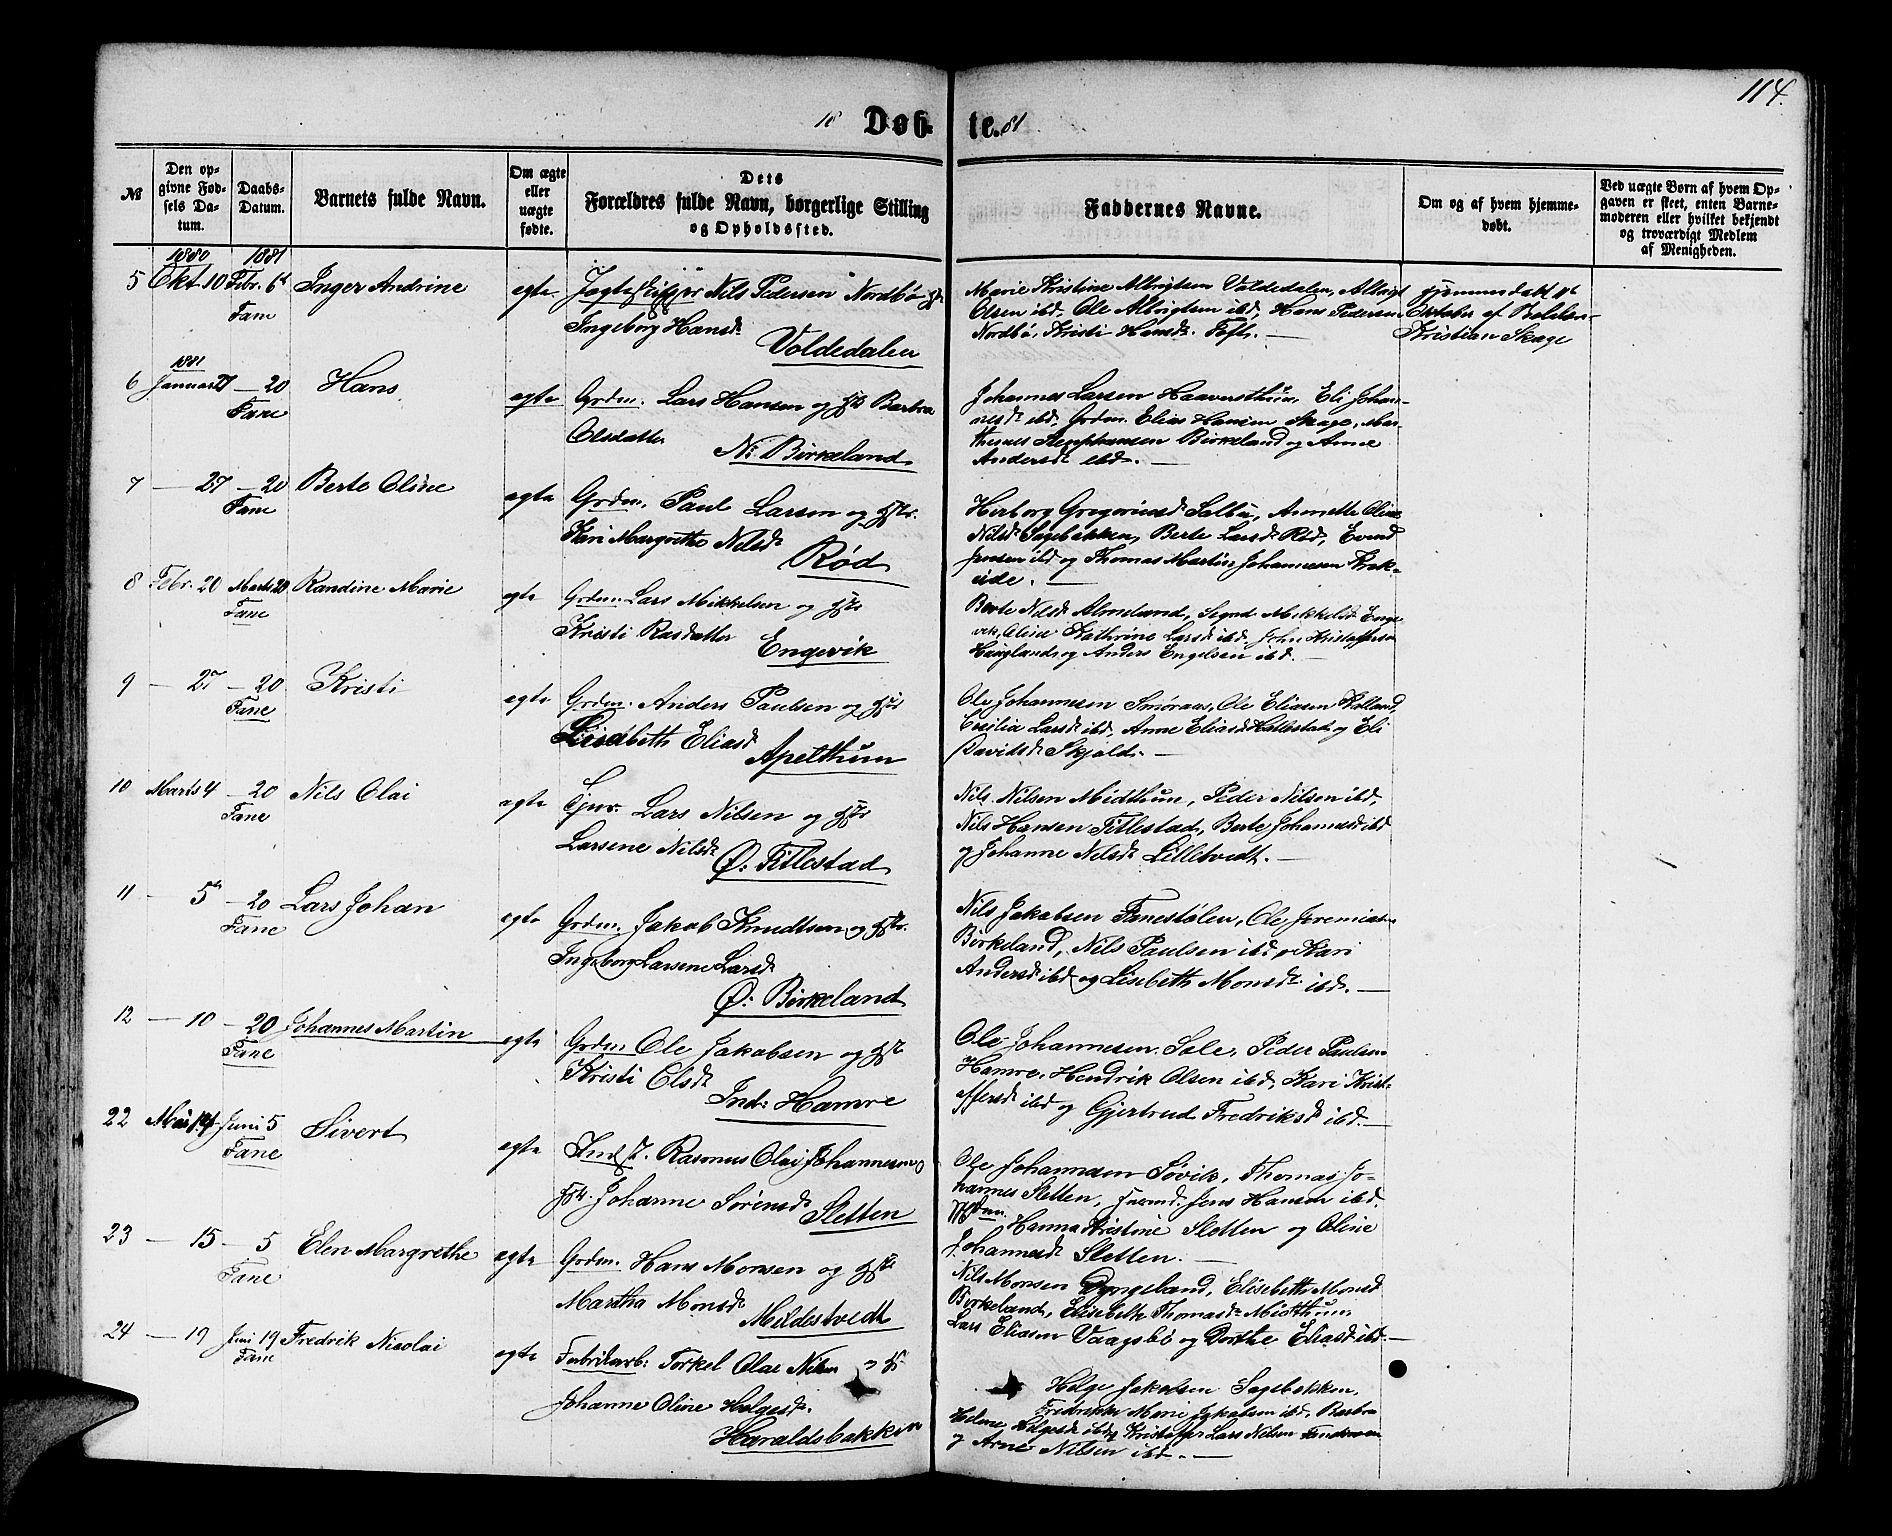 114.
18 Døb- te. 81
№
Den op-
givne Fød-
sels Da-
tum.
Daabs-
Datum.
Barnets fulde Navn.
Om ægte
eller
uægte
fødte.
Dets
Forældres fulde Navn, borgerlige Stilling
og Opholdssted.
Faddernes Navne.
Om og af hvem hjemme-
døbt.
Ved uægte Børn af hvem Op-
gaven er skeet, enten Barne-
moderen eller hvilket bekjendt
og troværdigt Medlem
af Menigheden.
1880 1881
5 Okt. 10 Febr. 6t Inger Andrine egte Nils Pedersen Nordbø
Fane
Ingeborg Hansdt
Voldedalen
Marie Kristine Albrigtsen Voldedalen, Albrigt
Olsen ibd, Ole Albrigtsen ibd, Hans Pedersen
Nordbø, Kristi Hansdt
Oktober af
Kristian Skage
1881
6 Januar 21 — 20 Hans egte Grdm. Lars Hansen og Hst Barbra
Fane
Olsdatter
N: Birkeland
Johannes Larsen Haaversthun, Eli Johan-
nesdt ibd, Grdm. Elias Hansen Skage,
Birkeland og Anne
Andersdt ibd. —
7 — 27 — 20 Berte Oline egte Grdm. Paul Larsen og Hstr.
Fane
Kari Margrethe Nilsdt
Rød
Herborg Gregoriusdt Annette Oline
Nilsdt Sagebakken, Berte Larsdt Rød,
Jensen ibd og Thomas Martin Johannesen
8 Febr. 20 Marts 20 Randine Marie egte Grdm. Lars Mikkelsen og Hst
Fane
Kristi Rasdatter
Engevik
Berte Nilsdt Mikkelsdt Enge-
vik, Oline Kathrine Larsdt ibd, John Kristoffersen
Hauglands og Anders Engelsen ibd. —
9 — 27 — 20 Kristi egte Grdm. Anders Paulsen og Hst
Fane
Lisebeth Eliasdt
Apelthun
Ole Johannesen Smøraas, Ole Eliasen
Cecilia Larsdt ibd, Anne Eliasdt Hatlestad og Eli
Davidsdt Skjold. —
10 Marts 4 — 20 Nils Olai egte Lars Nilsen og Hst
Fane
Larsene Nilsdt
Ø: Titlestad
Nils Nilsen Midthun, Peder Nilsen ibd,
Nils Hansen Titlestad, Berte Johannesdt ibd
og Johanne Nilsdt Lilletvedt. —
11 — 5te — 20 Lars Johan egte Grdm. Jakob Knudtsen og Hstr.
Fane
Ingeborg Larsene Larsdt
Ø: Birkeland
Nils Jakobsen Fanestølen, Ole
Birkeland, Nils Paulsen ibd, Kari
Andersdt ibd og Lisebeth Monsdt ibd. —
12 — 10 — 20 Johannes Martin egte Grdm Ole Jakobsen og Hst
Fane
Kristi Olsdt
Ind: Hamre
Ole Johannesen Sole, Peder Paulsen
Hamre, Hendrik Olsen ibd, Kari Krist-
offersdt ibd og Gjertrud Fredriksdt ibd. —
22 Juni 5 Sivert egte Indst. Rasmus Olai Johannesen
Fane
Hst. Johanne Sørensdt
Sletten
Ole Johannesen Søvik, Thomas Jo-
hannes Sletten, Jens Hansen ibd.
Hanna Kristine Sletten og Oline
Johannesdt Sletten. —
23 — 15 — 5 Elen Margrethe egte Grdm. Hans Monsen og Hst
Fane
Martha Monsdt
Mildestvedt
Nils Monsen Dyngeland, Elisebeth Monsdt
Birkeland, Elisebeth Thomasdt Midthun,
Lars Eliasen Vaagsbø og Dorthe Eliasdt ibd. —
24 — 19 Juni 19 Fredrik Nicolai egte Fabrikarb: Torkel Olai Nilsen
Fane
Johanne Oline Helgesdt.
Haraldsbakken
Helge Jakobsen Sagebakken,
Marie Jakobsen ibd, Barbra
Helene Helgesdt ibd, Kristoffer Lars Nilsen
og Arne Nilsen ibd. —